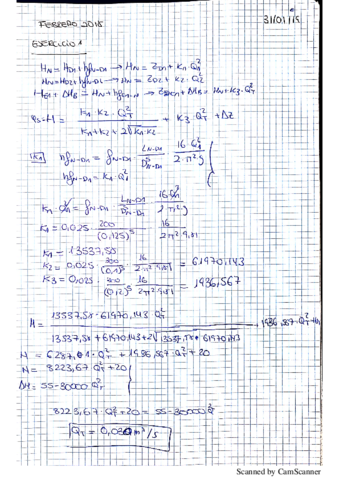 FEBRERO 2015
31/01/15
EJERCICIO 1
H_N = H_D1 + hf_N-D1 → H_N = Z_D1 + K1 · Q1²
H_N = H_D2 + hf_N-D2 → H_N = Z_D2 + K2 · Q2²
φs = H = K1 · K2 · Q_T² / K1 + K2 + 2√K1·K2 + K3 · Q_T² + ΔZ
K1 hf_N-D1 = f_N-D1 · L_N-D1 / D⁵_N-D1 · 16 · Q1² / 2 · π² g
hf_N-D1 = K1 · Q1²
K1 · Q1² = f_N-D1 · L_N-D1 / D⁵_N-D1 · 16 Q1² / 2 π² g
K1 = 0,025 · 200 / (0,125)⁵ · 16 / 2 π² 9,81
K1 = 13537,58
K2 = 0,025 · 300 / (0,1)⁵ · 16 / 2 π² 9,81 = 61970,143
K3 = 0,025 · / (0,2)⁵ · 16 / 2 π² 9,81 = 1936,567
H = 13537,58 · 61970,143 Q_T² / 13537,58 + 61970,143 + 2√13537,58 · 61970,143 + 1936,567 · Q_T² +
H = 6287,01 · Q_T² + 1936,567 · Q_T² + 20
H = 8223,67 Q_T² + 20
ΔH = 55 - 30000 Q_T²
8223,67 · Q_T² + 20 = 55 - 30000 Q²
Q_T = 0,030 m³/s
Scanned by CamScanner